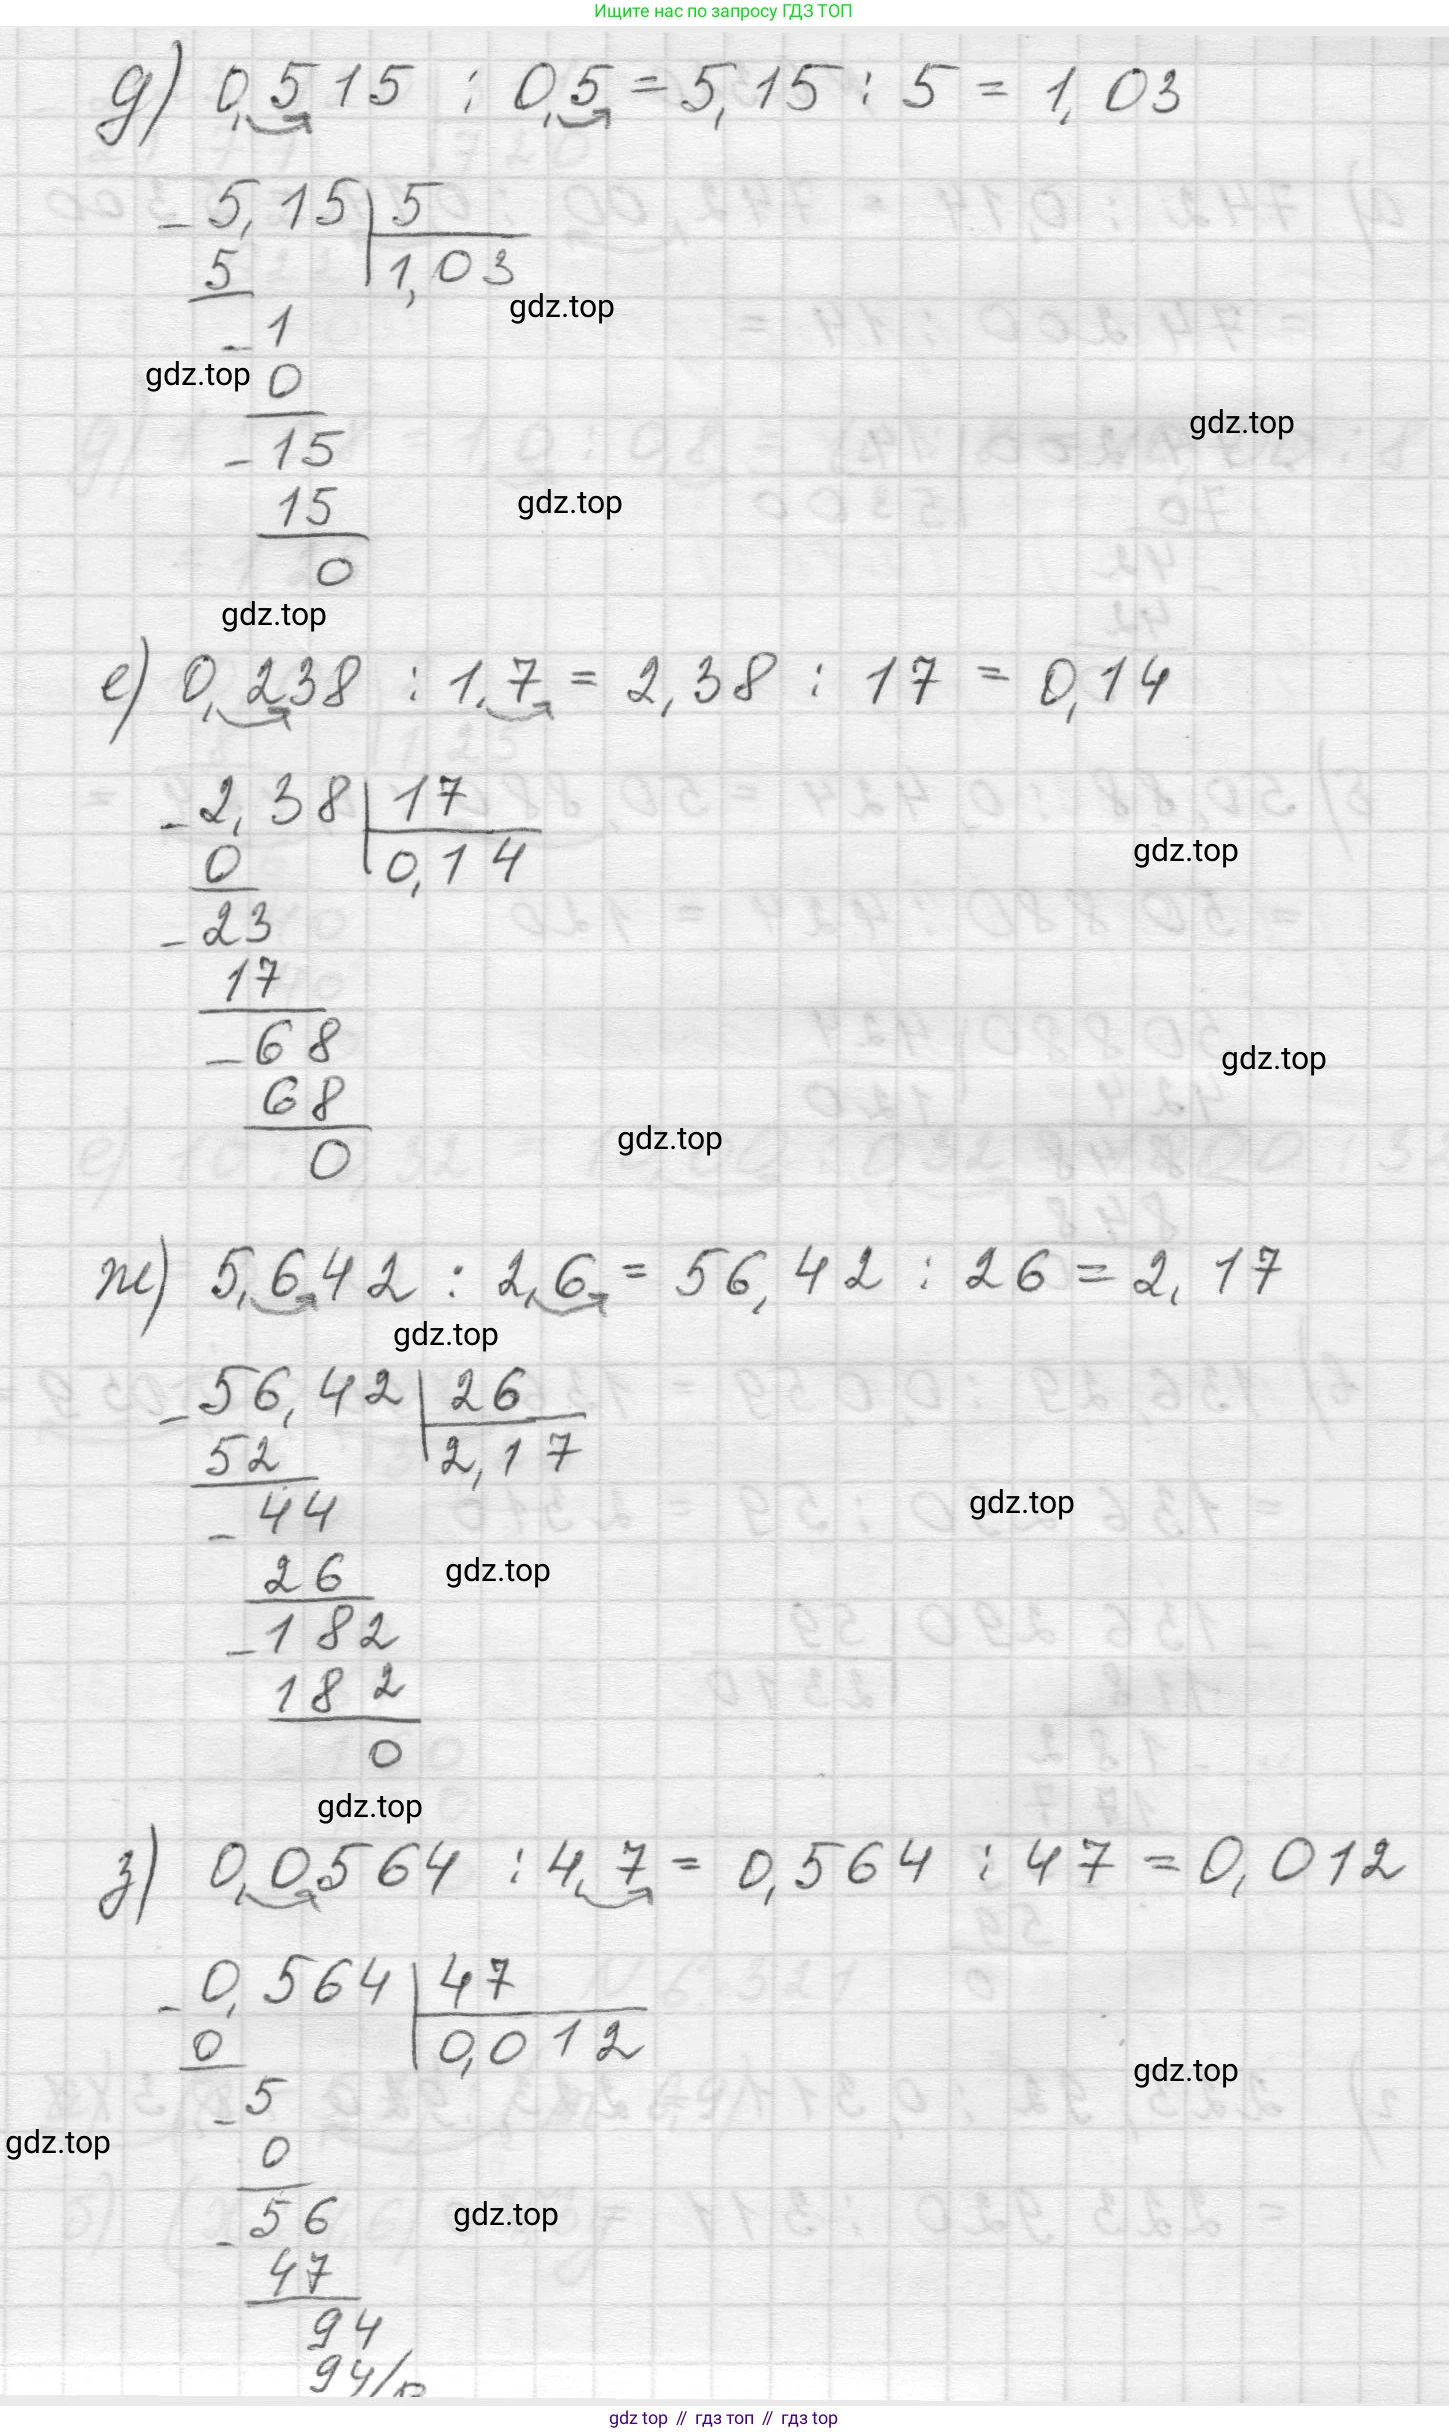 Ищите нас по запросу ГДЗ ТОП
д) 0,515 : 0,5 = 5,15 : 5 = 1,03
- 5,15 | 5
5 | 1,03
gdz.top
- 1
gdz.top 0
gdz.top
- 15
15 gdz.top
0
gdz.top
е) 0,238 : 1,7 = 2,38 : 17 = 0,14
- 2,38 | 17
0 | 0,14
gdz.top
- 23
17
- 68
gdz.top
68
gdz.top
0
ж) 5,642 : 2,6 = 56,42 : 26 = 2,17
gdz.top
- 56,42 | 26
52 | 2,17
- 44
gdz.top
26
gdz.top
- 182
182
0
gdz.top
з) 0,0564 : 4,7 = 0,564 : 47 = 0,012
- 0,564 | 47
0 | 0,012
gdz.top
- 5
gdz.top 0
- 56
gdz.top
47
94
94
gdz top // гдз топ // гдз top